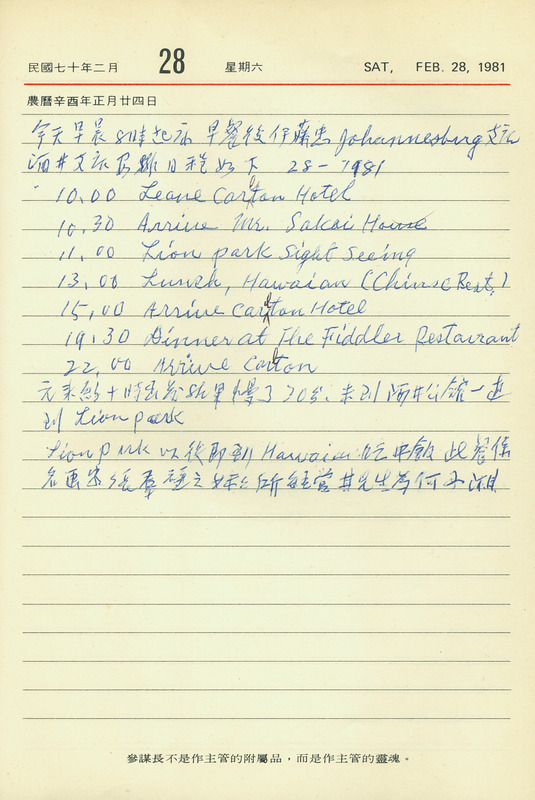 民國七十年二月 28 星期六 SAT, FEB. 28, 1981
農曆辛酉年正月廿四日
今天早晨8時起床 早餐後伊藤忠 Johannesburg 支店
酒井支店長 日程如下 28-2-1981
10.00 Leave Carlton Hotel
10.30 Arrive Mr. Sakai House
11.00 Lion park Sight Seeing
13.00 Lunch, Hawaian (Chinse Rest.)
15.00 Arrive Carlton Hotel
19.30 Dinner at The Fiddler Restaurant
22.00 Arrive Carlton
元来的十時出發結果慢了30分. 来到酒井公館一起
到 Lion park
Lion park 以後即到 Hawaian 吃中飯 此餐係
名画家 所經營其先生為何
參謀長不是作主管的附屬品，而是作主管的靈魂。